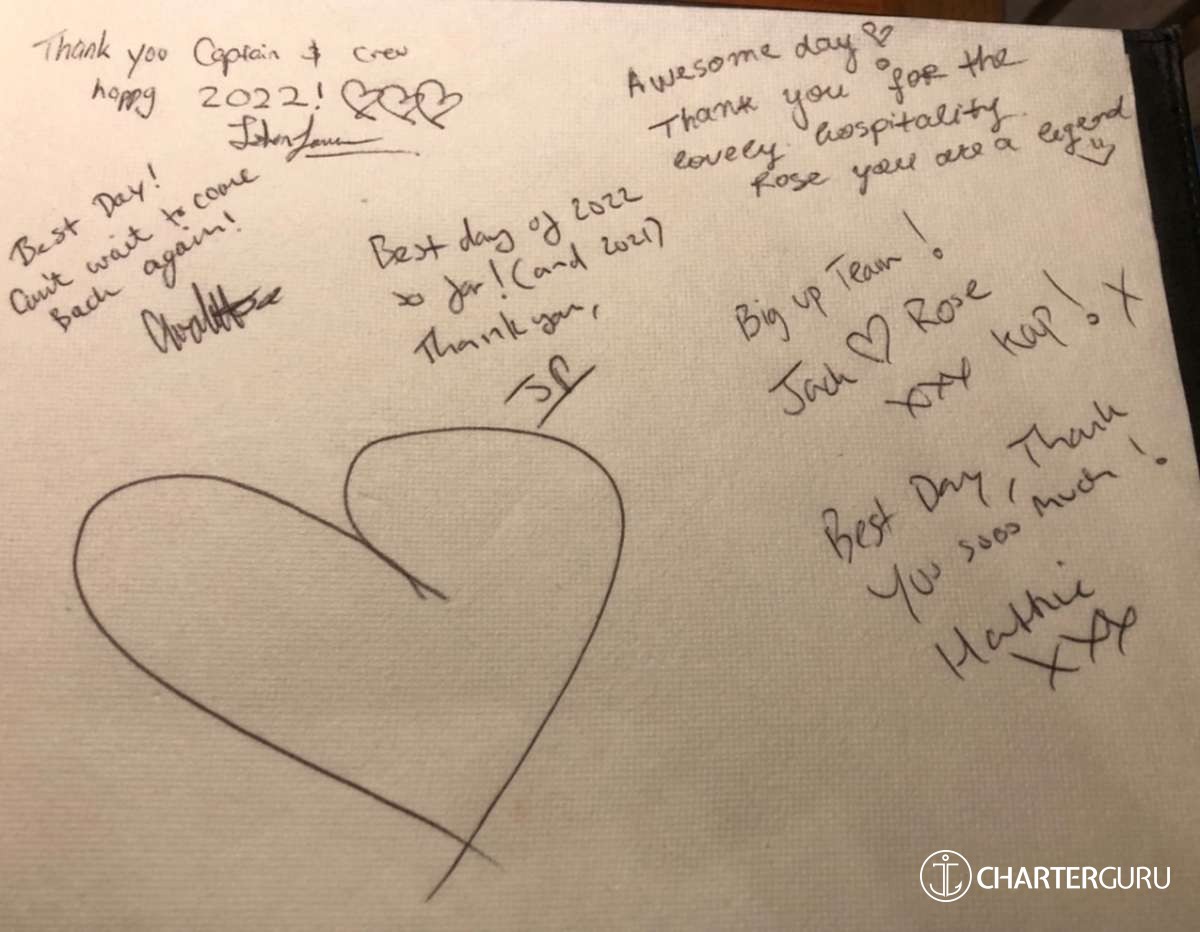 Thank you Captain & crew
happy 2022!
Best Day!
Can't wait to come
Back again!
Best day of 2022
so far! (and 2021)
Thank you,
JP
Awesome day
Thank you for the
lovely hospitality.
Rose you are a legend
Big up Team!
Jack Rose
xxx Kap! X
Best Day, Thank
you sooo much!
Hattie
xxx
CHARTERGURU